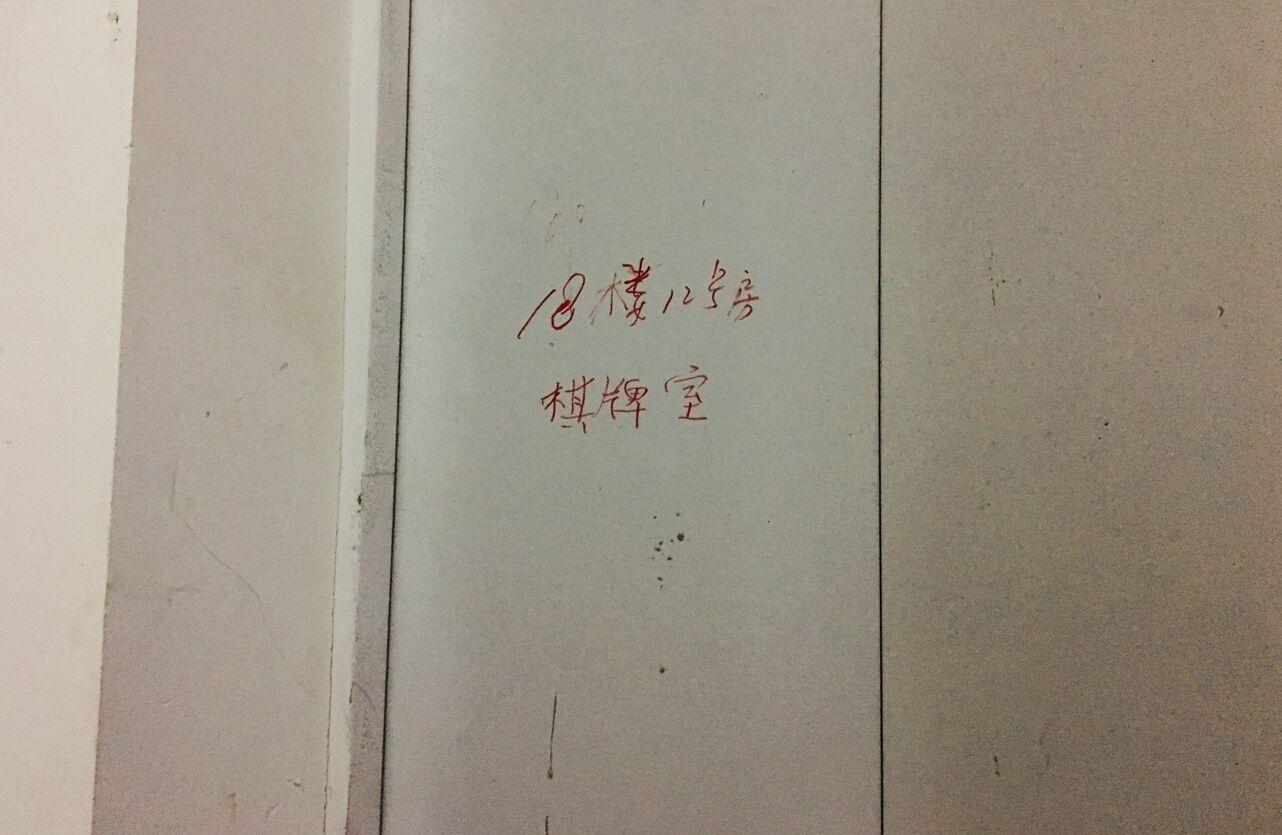 18楼12号房
棋牌室